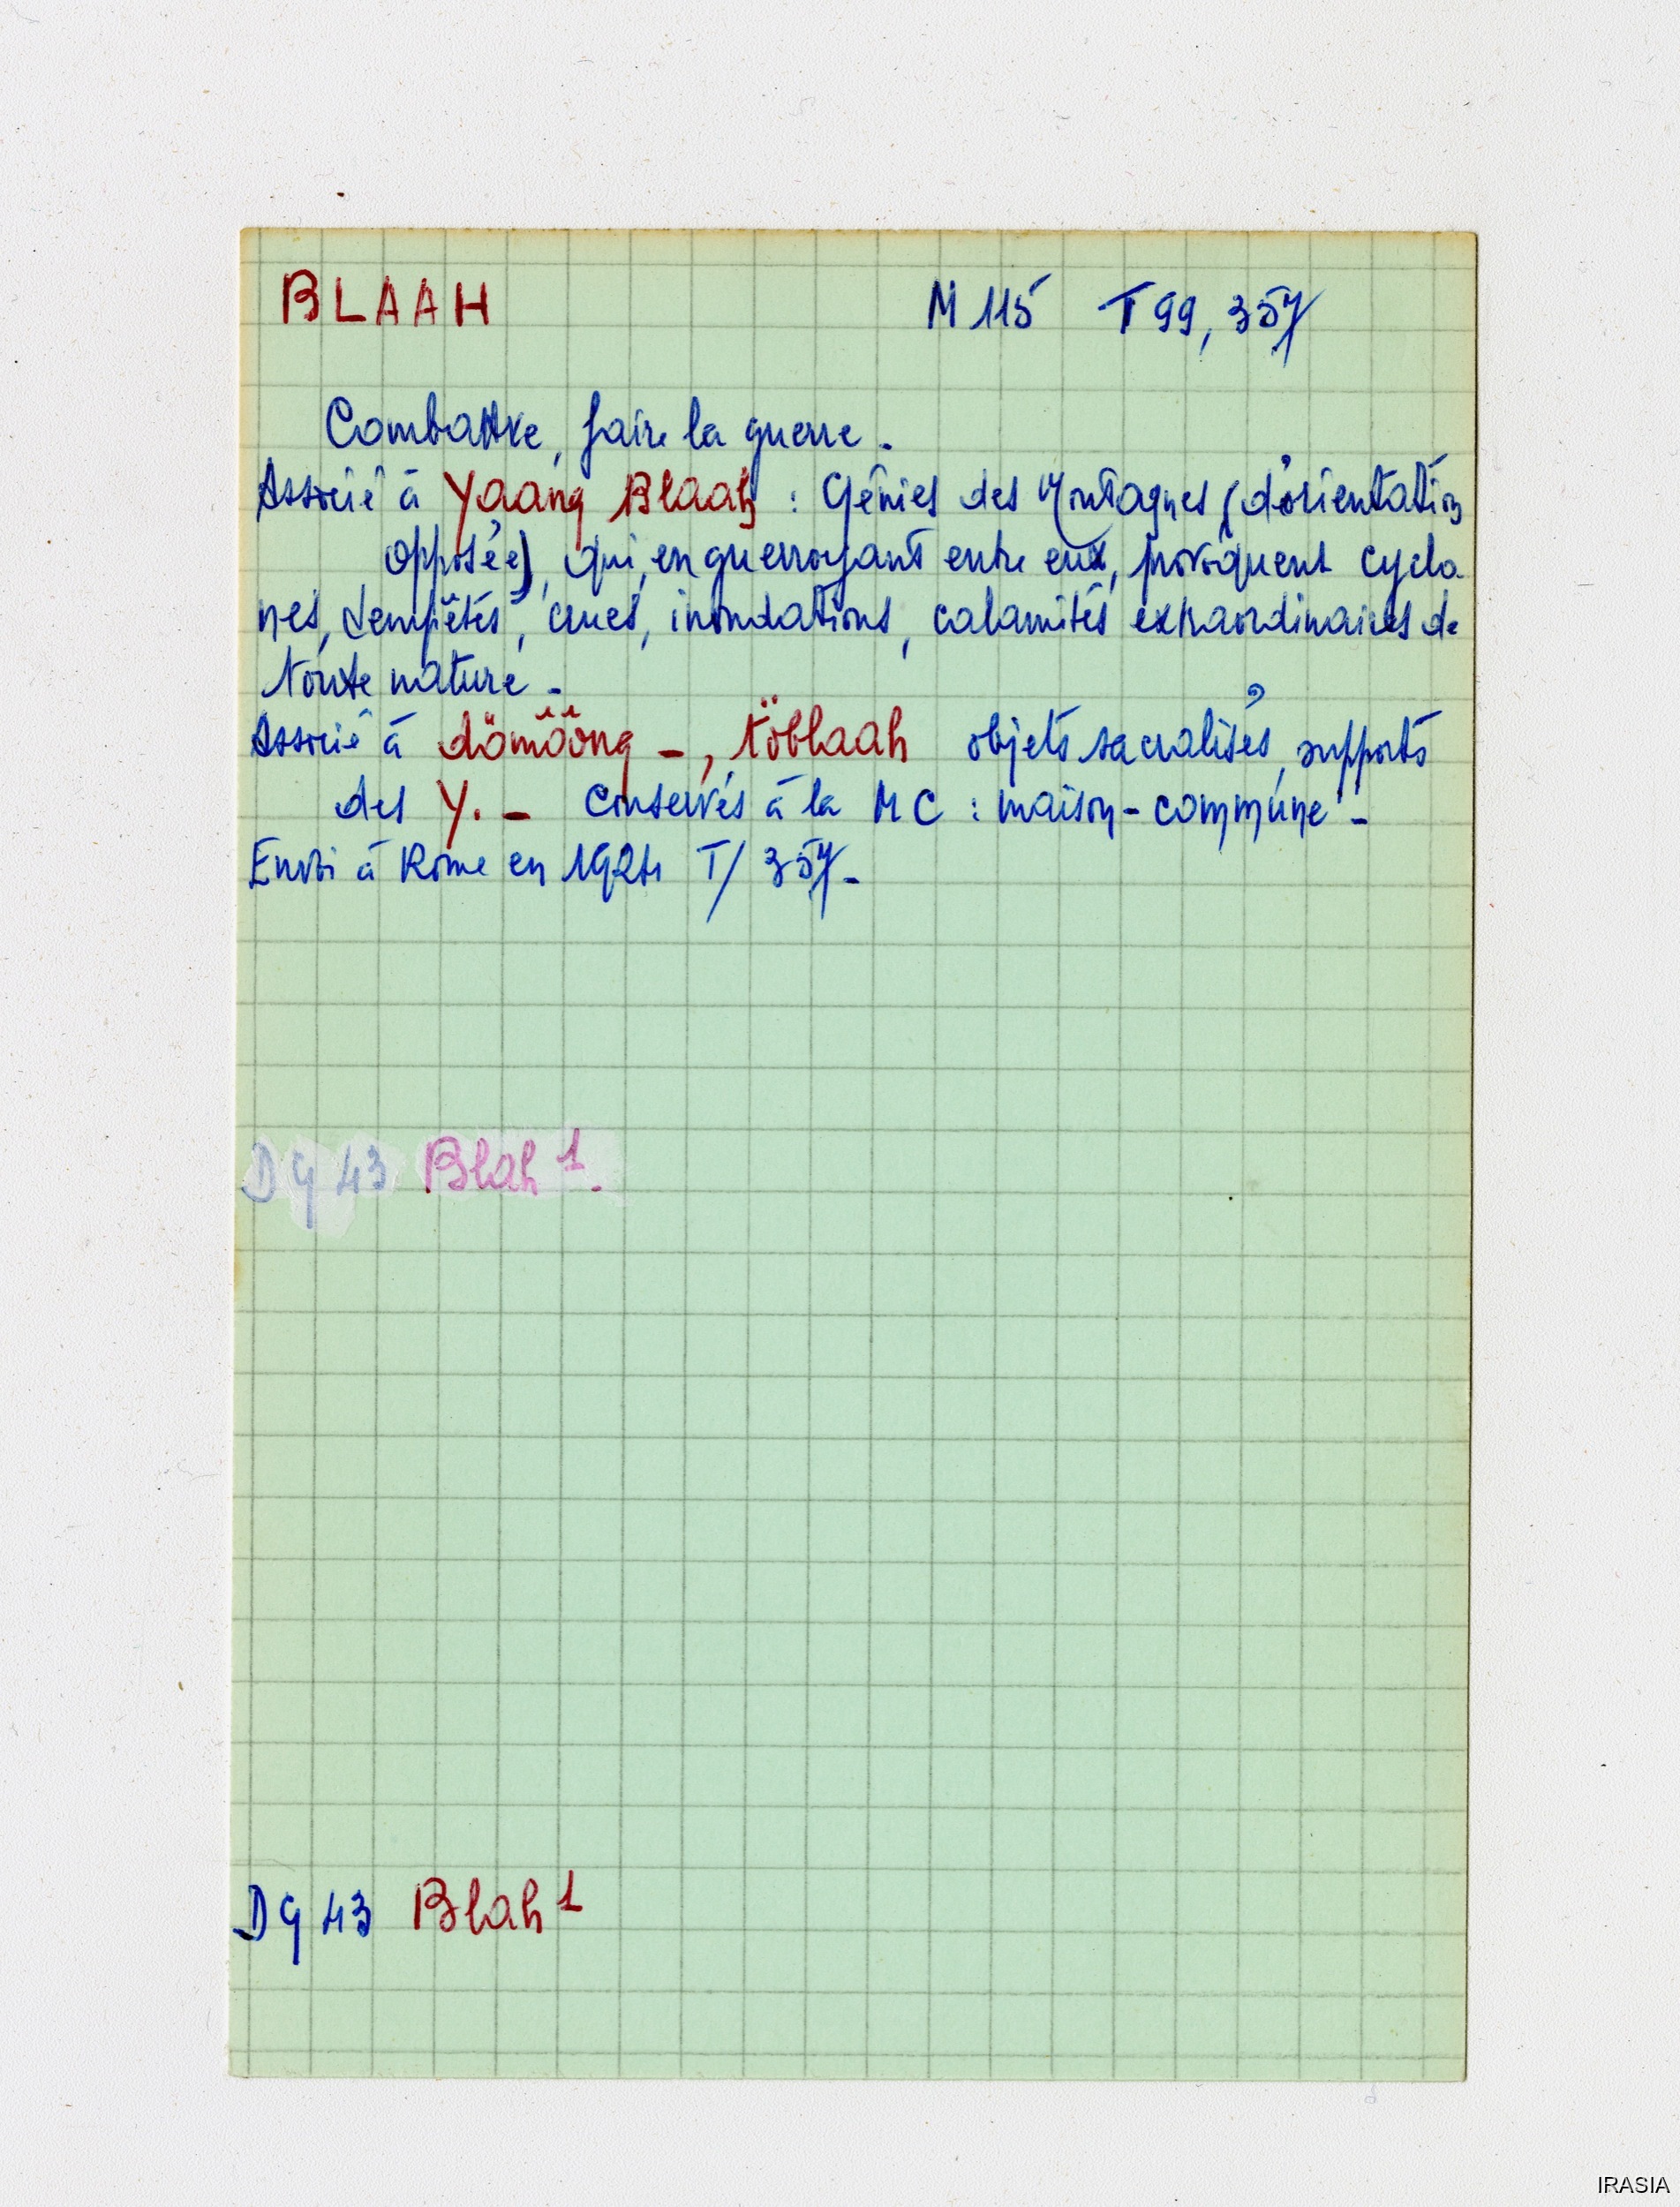 BLAAH M 115 T 99, 357
Combattre, faire la guerre -
Associé à Yaang Blaah : Génies des Montagnes (d'orientation
opposée), qui, en guerroyant entre eux, provoquent cyclo-
nes, tempêtes, crues, inondations, calamités extraordinaires de
toute nature -
Associé à dömôông -, töblaah objets sacralisés, supports
des Y. - Conservés à la MC : maison-commune -
Envoi à Rome en 1924 T/ 357 -
DG 43 Blah 1.
DG 43 Blah 1
IRASIA